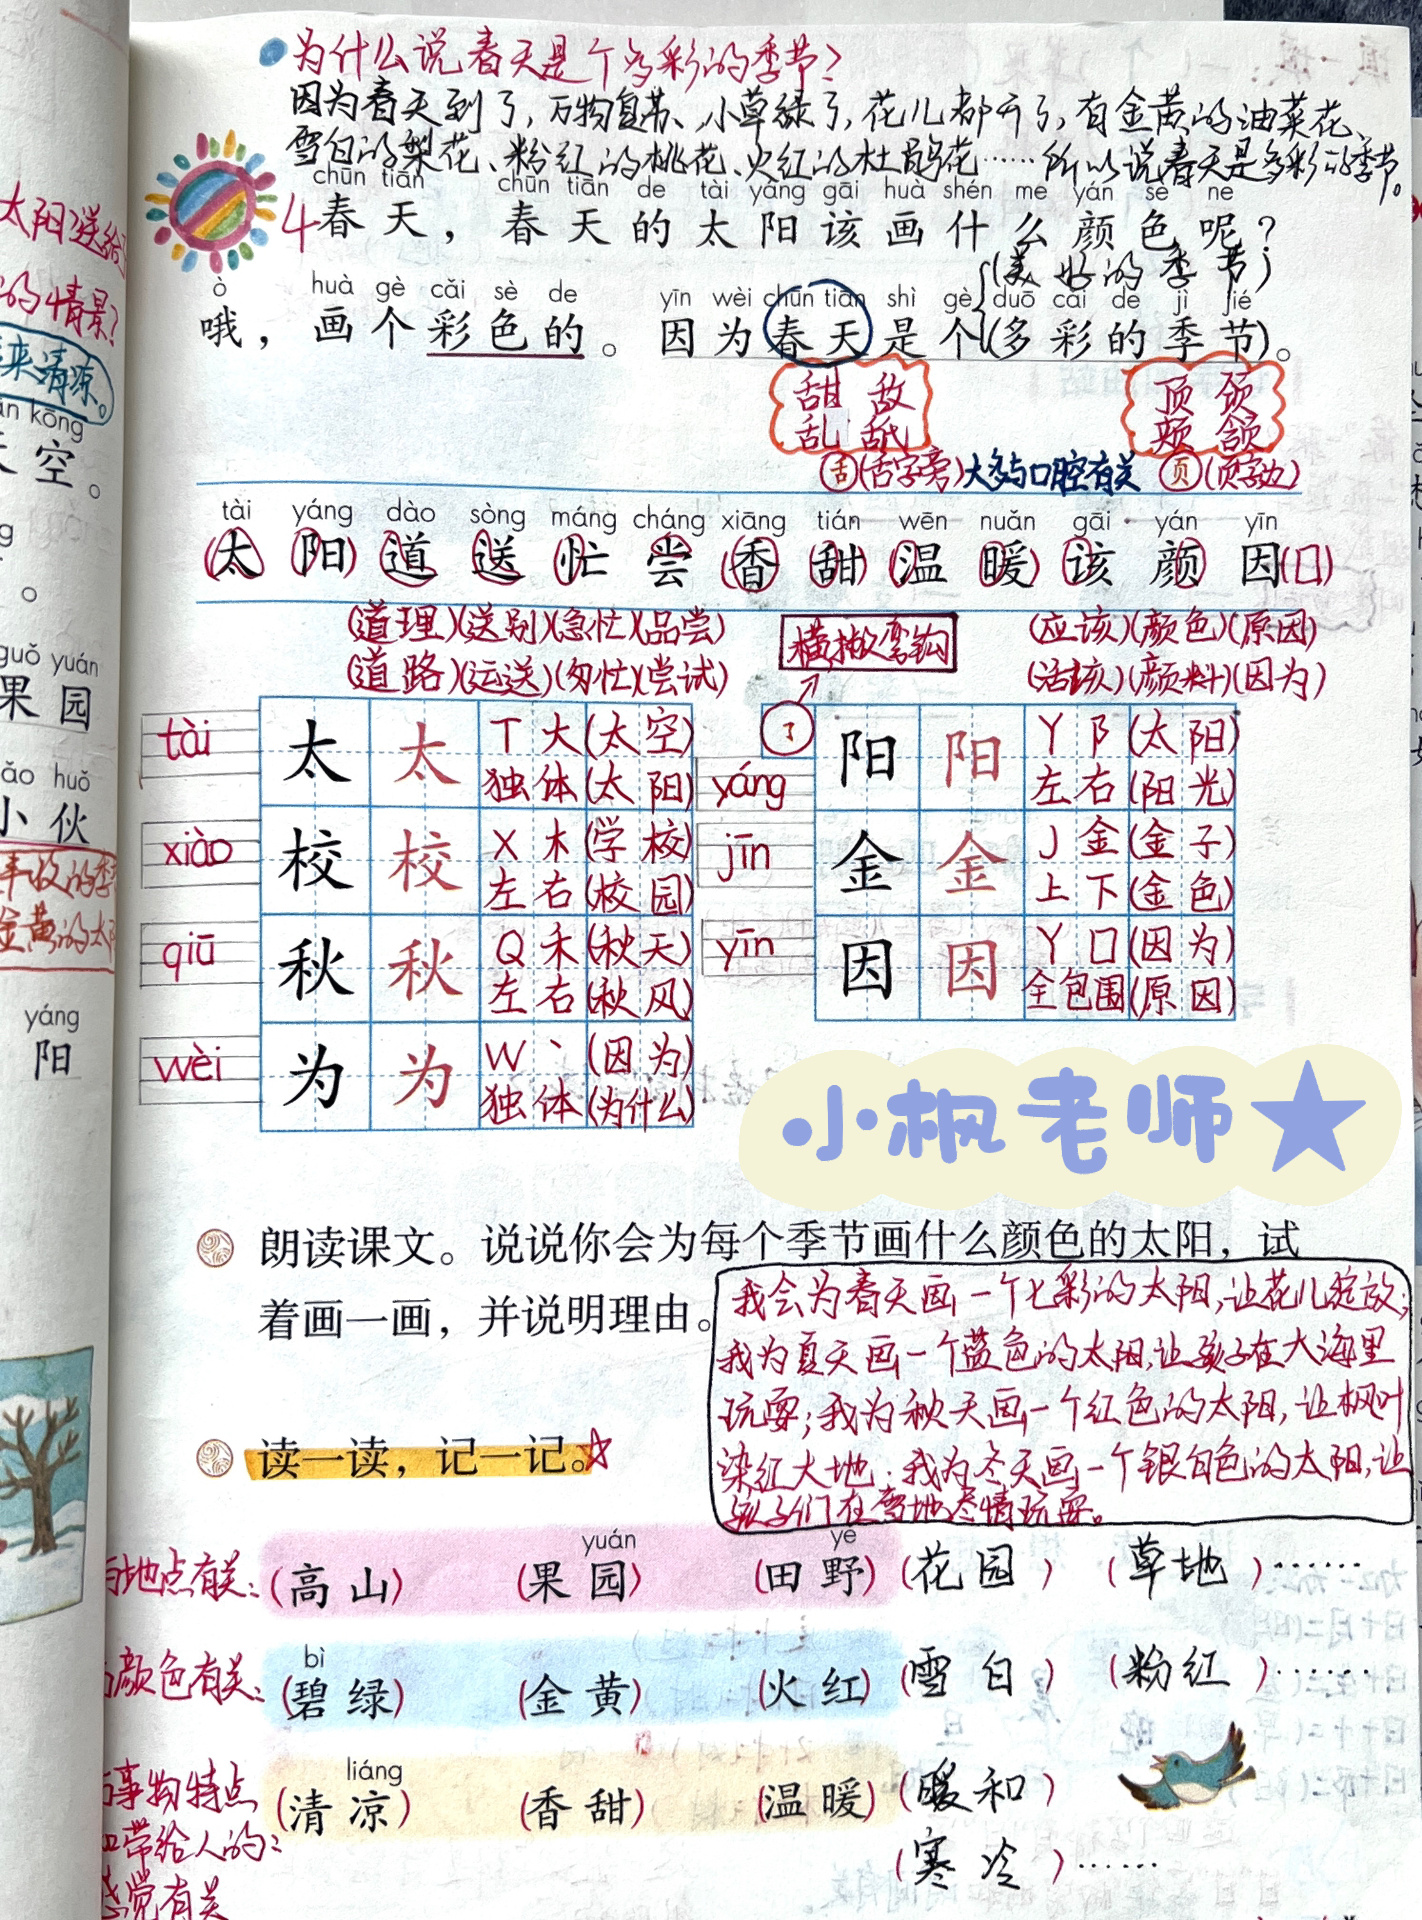 为什么说春天是个多彩的季节?
因为春天到了,万物复苏、小草绿了,花儿都开了,有金黄的油菜花、
雪白的梨花、粉红的桃花、火红的杜鹃花……所以说春天是多彩的季节。
chūn tiān chūn tiān de tài yáng gāi huà shén me yán sè ne
4春天，春天的太阳该画什么颜色呢？
(美好的季节)
ò huà gè cǎi sè de yīn wèi chūn tiān shì gè duō cǎi de jì jié
哦，画个彩色的。因为春天是个(多彩的季节)。
甜 敌 顶 颈
乱 舐 颊 颔
舌(舌字旁)大多与口腔有关 页(页字边)
tài yáng dào sòng máng cháng xiāng tián wēn nuǎn gāi yán yīn
(太阳)道送忙尝(香甜)(温暖)该颜因(囗)
(道理)(送别)(急忙)(品尝) 横撇弯钩 (应该)(颜色)(原因)
(道路)(运送)(匆忙)(尝试) (活该)(颜料)(因为)
tài 太 太 T 大 (太空)
独体 (太阳)
yáng 阳 阳 Y 阝 (太阳)
左右 (阳光)
xiào 校 校 X 木 (学校)
左右 (校园)
jīn 金 金 J 金 (金子)
上下 (金色)
qiū 秋 秋 Q 禾 (秋天)
左右 (秋风)
yīn 因 因 Y 囗 (因为)
全包围 (原因)
wèi 为 为 W 丶 (因为)
独体 (为什么)
小枫老师★
朗读课文。说说你会为每个季节画什么颜色的太阳，试
着画一画，并说明理由。
我会为春天画一个七彩的太阳,让花儿绽放;
我为夏天画一个蓝色的太阳,让孩子在大海里
玩耍;我为秋天画一个红色的太阳,让枫叶
染红大地;我为冬天画一个银白色的太阳,让
孩子们在雪地尽情玩耍。
读一读，记一记。☆
yuán yě
与地点有关:(高山) (果园) (田野) (花园) (草地)……
bì
与颜色有关:(碧绿) (金黄) (火红) (雪白) (粉红)……
liáng
与事物特点 (清凉) (香甜) (温暖) (暖和)
带给人的:
感觉有关 (寒冷)……
太阳送给
的情景?
来清凉。
kōng
天空。
。
guǒ yuán
果园
huǒ
小伙
丰收的季
金黄的太阳
yáng
阳